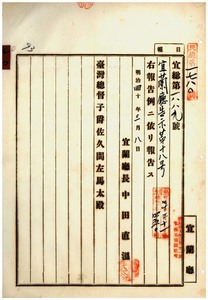 報 日
宜總第一八八九號
宜蘭廳告示第十八號
右報告例ニ依リ報告ス
明治四十年二月八日
宜蘭廳長中田直溫
臺灣總督子爵佐久間左馬太殿
宜蘭廳